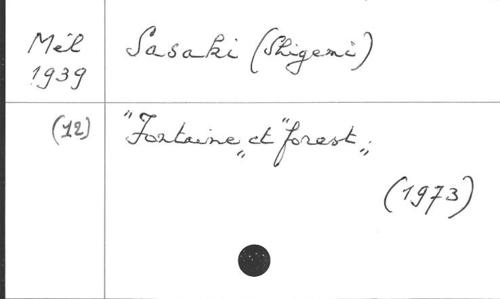 Mél
1939
Sasaki (Shigemi)
(12)
"Fontaine„ et "forest„.
(1973)